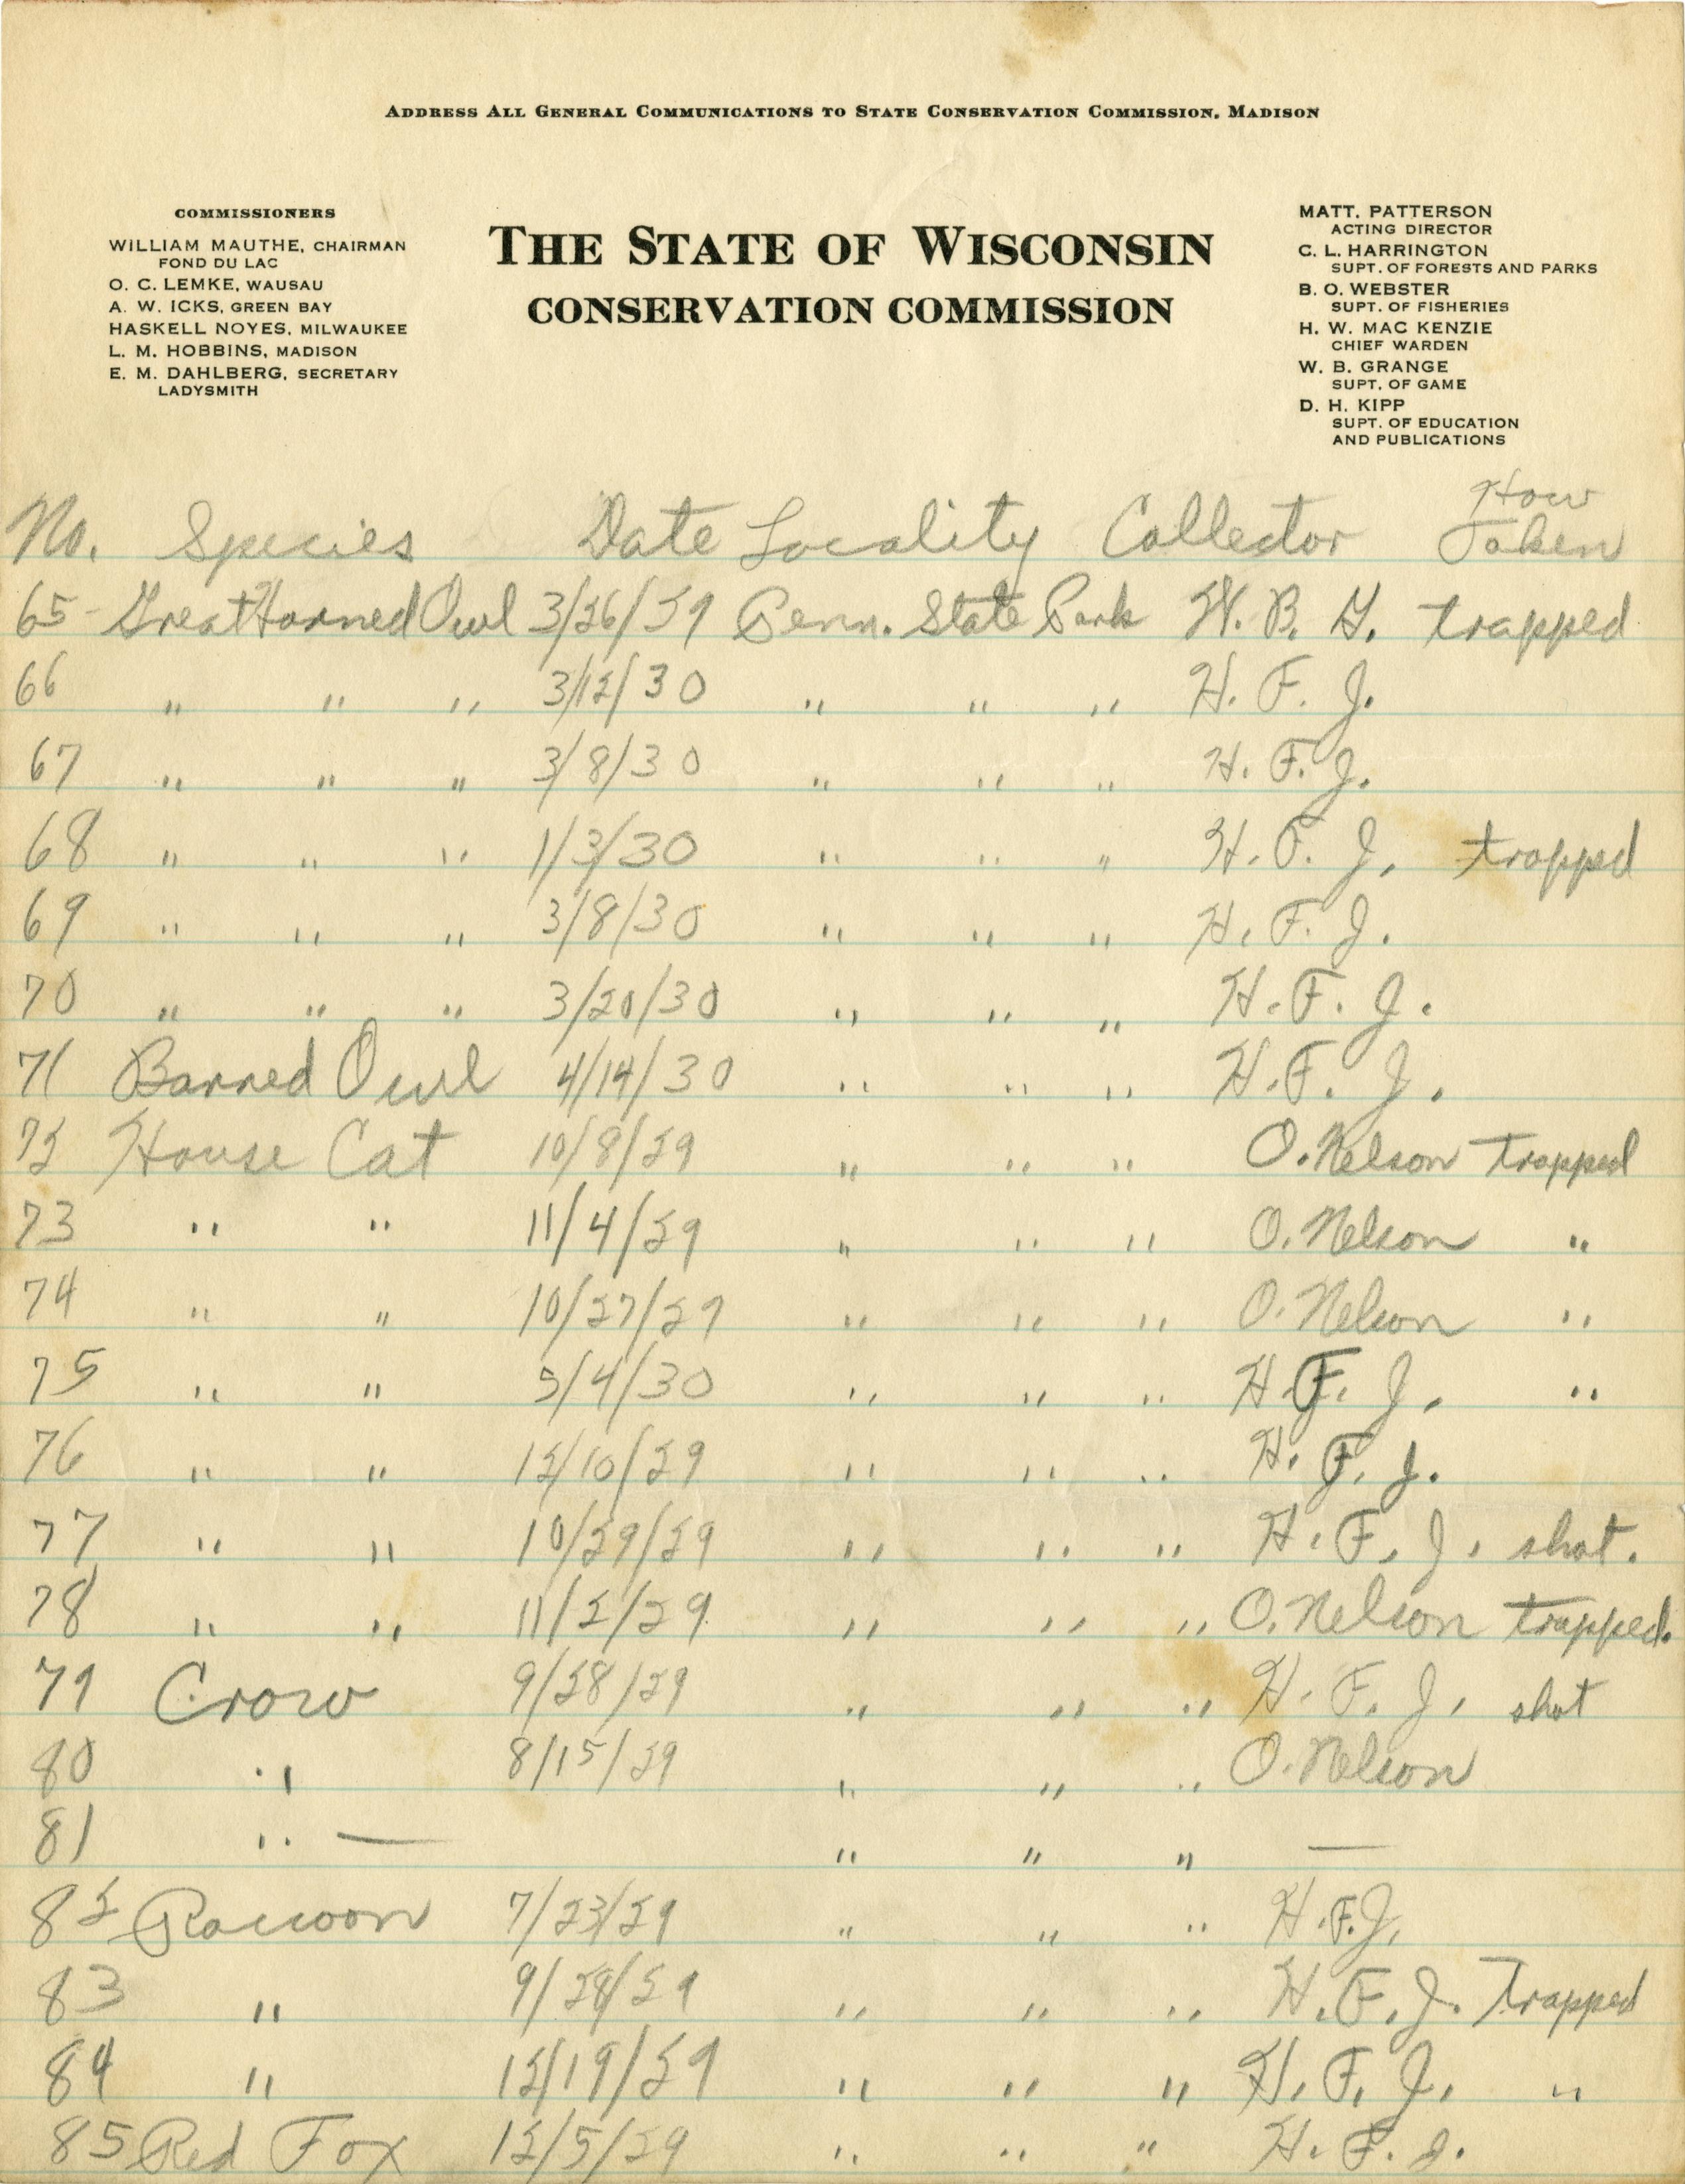 ADDRESS ALL GENERAL COMMUNICATIONS TO STATE CONSERVATION COMMISSION, MADISON
COMMISSIONERS
WILLIAM MAUTHE, CHAIRMAN
FOND DU LAC
O. C. LEMKE, WAUSAU
A. W. ICKS, GREEN BAY
HASKELL NOYES, MILWAUKEE
L. M. HOBBINS, MADISON
E. M. DAHLBERG, SECRETARY
LADYSMITH
THE STATE OF WISCONSIN
CONSERVATION COMMISSION
MATT. PATTERSON
ACTING DIRECTOR
C. L. HARRINGTON
SUPT. OF FORESTS AND PARKS
B. O. WEBSTER
SUPT. OF FISHERIES
H. W. MAC KENZIE
CHIEF WARDEN
W. B. GRANGE
SUPT. OF GAME
D. H. KIPP
SUPT. OF EDUCATION
AND PUBLICATIONS
No. Species Date Locality Collector How Taken
65 - Great Horned Owl 3/26/29 Penn. State Park W. B. G. trapped
66 " " " 3/12/30 " " " H. F. J.
67 " " " 3/8/30 " " " H. F. J.
68 " " " 1/3/30 " " " H. F. J. trapped
69 " " " 3/8/30 " " " H. F. J.
70 " " " 3/20/30 " " " H. F. J.
71 Barred Owl 4/14/30 " " " H. F. J.
72 House Cat 10/8/29 " " " O. Nelson trapped
73 " " 11/4/29 " " " O. Nelson "
74 " " 10/27/29 " " " O. Nelson "
75 " " 5/4/30 " " " H. F. J. "
76 " " 12/10/29 " " " H. F. J.
77 " " 10/29/29 " " " H. F. J. shot.
78 " " 11/2/29 " " " O. Nelson trapped.
79 Crow 9/28/29 " " " H. F. J. shot
80 " 8/15/29 " " " O. Nelson
81 " — " " " —
82 Racoon 7/23/29 " " " H. F. J.
83 " 9/28/29 " " " H. F. J. Trapped
84 " 12/19/29 " " " H. F. J. "
85 Red Fox 12/5/29 " " " H. F. J.